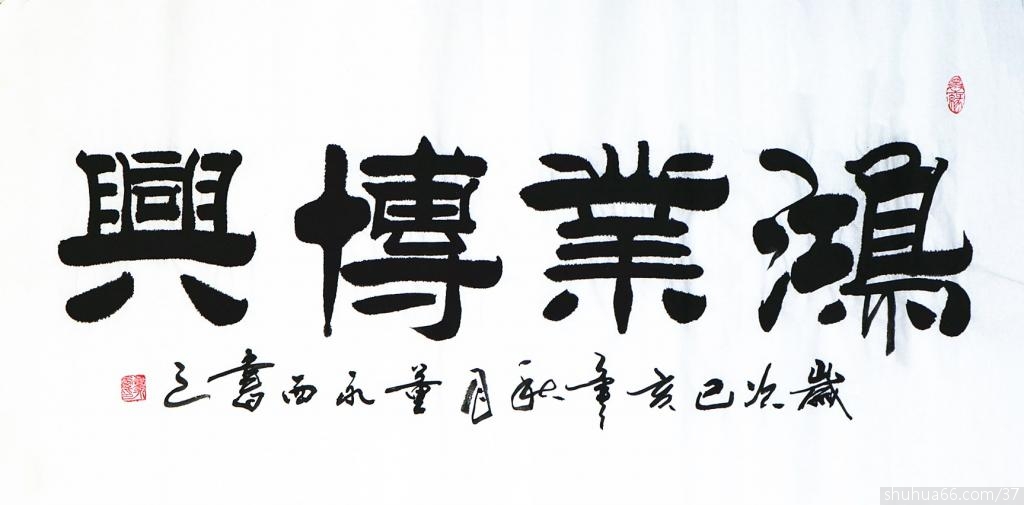 鴻業博興
歲次己亥年秋月董永西書之
shuhua66.com/37